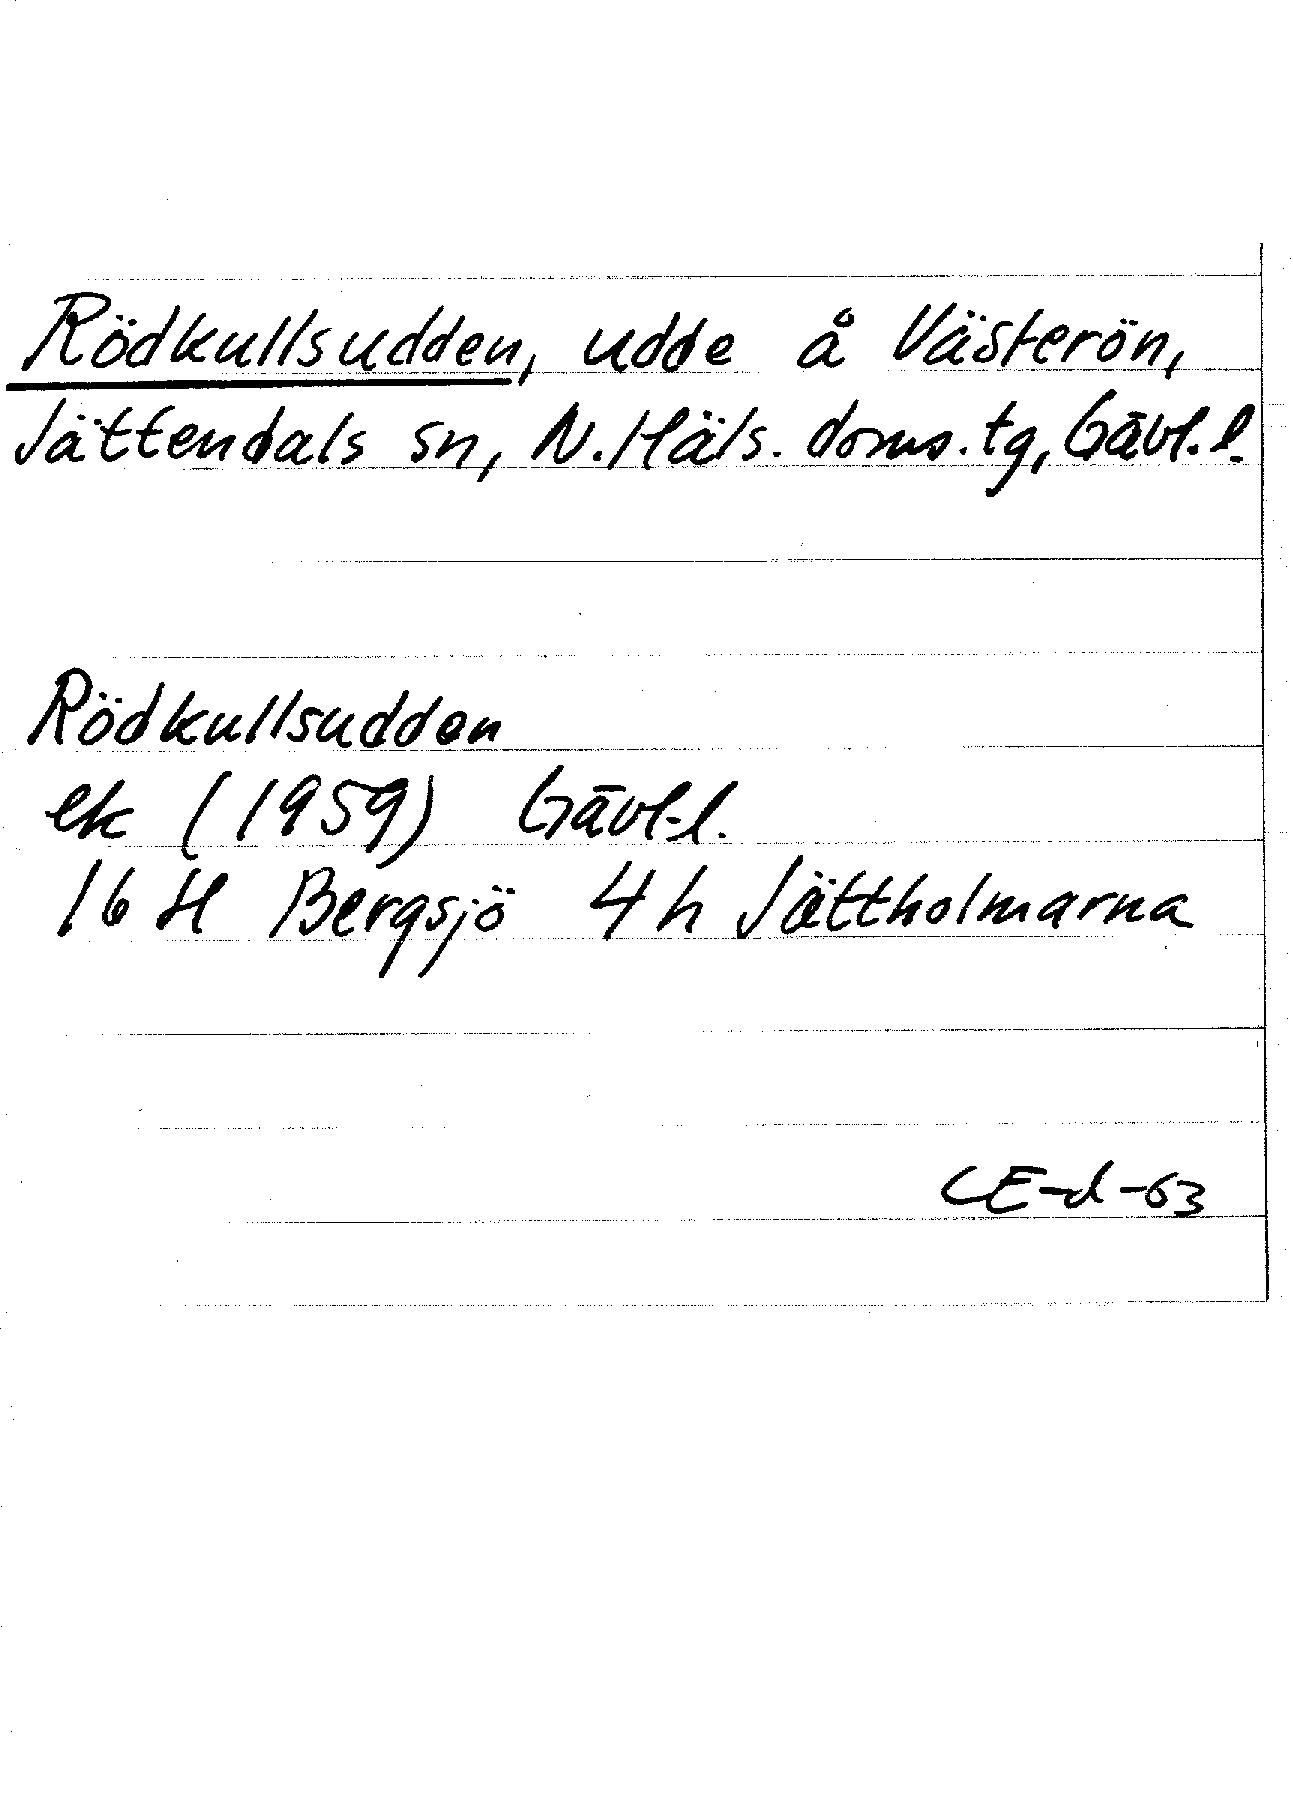 Rödkullsudden, udde å Västerön,
Jättendals sn, N. Häls. doms. tg, Gävl. l.
Rödkullsudden
ek (1959) Gävl-l.
16 H Bergsjö 4 h Jättholmarna
CE-d-63